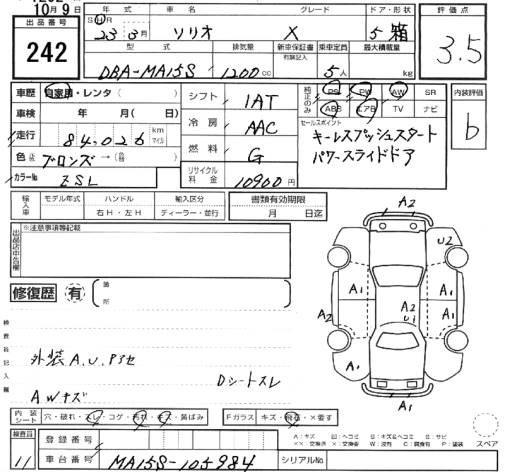 10月9日
出品番号
242
年式 車名 グレード ドア・形状 評価点
S H R 23年3月 ソリオ X 5 箱 3.5
型式 排気量 新車保証書 有類記入 乗車定員 最大積載量
DBA-MA15S 1200cc 5人 kg
車歴 自家用・レンタ( ) シフト 1AT 純正のみ PS PW AW SR 内装評価
ABS エアB TV ナビ b
車検 年 月( ) 冷房 AAC セールスポイント
走行 84,026 km マイル 燃料 G キーレスプッシュスタート
色 ブロンズ→( ) パワースライドドア
カラーNo ZSL リサイクル料金 10900円
輸入車 モデル年式 ハンドル 輸入区分 書類有効期限
右H・左H ディーラー・並行 月 日迄
出品店申告欄 ※注意事項等記載
修復歴 有 箇所
検査員記入欄
外装A.U.Pキセ
Dシートスレ
AWキズ
A2
U2
A1
A1 A1
A2 A2 U1 A2
A1 A1
A1
内装シート 穴・破れ・スレ・コゲ・汚れ・キズ・黄ばみ Fガラス キズ・飛石・×要す
A:キズ U:ヘコミ B:キズ&ヘコミ S:サビ
××:交換済 X:交換要 W:波有 C:腐食有 P:塗装 スペア
検査員 11
登録番号
車台番号 MA15S-105984 シリアルNo